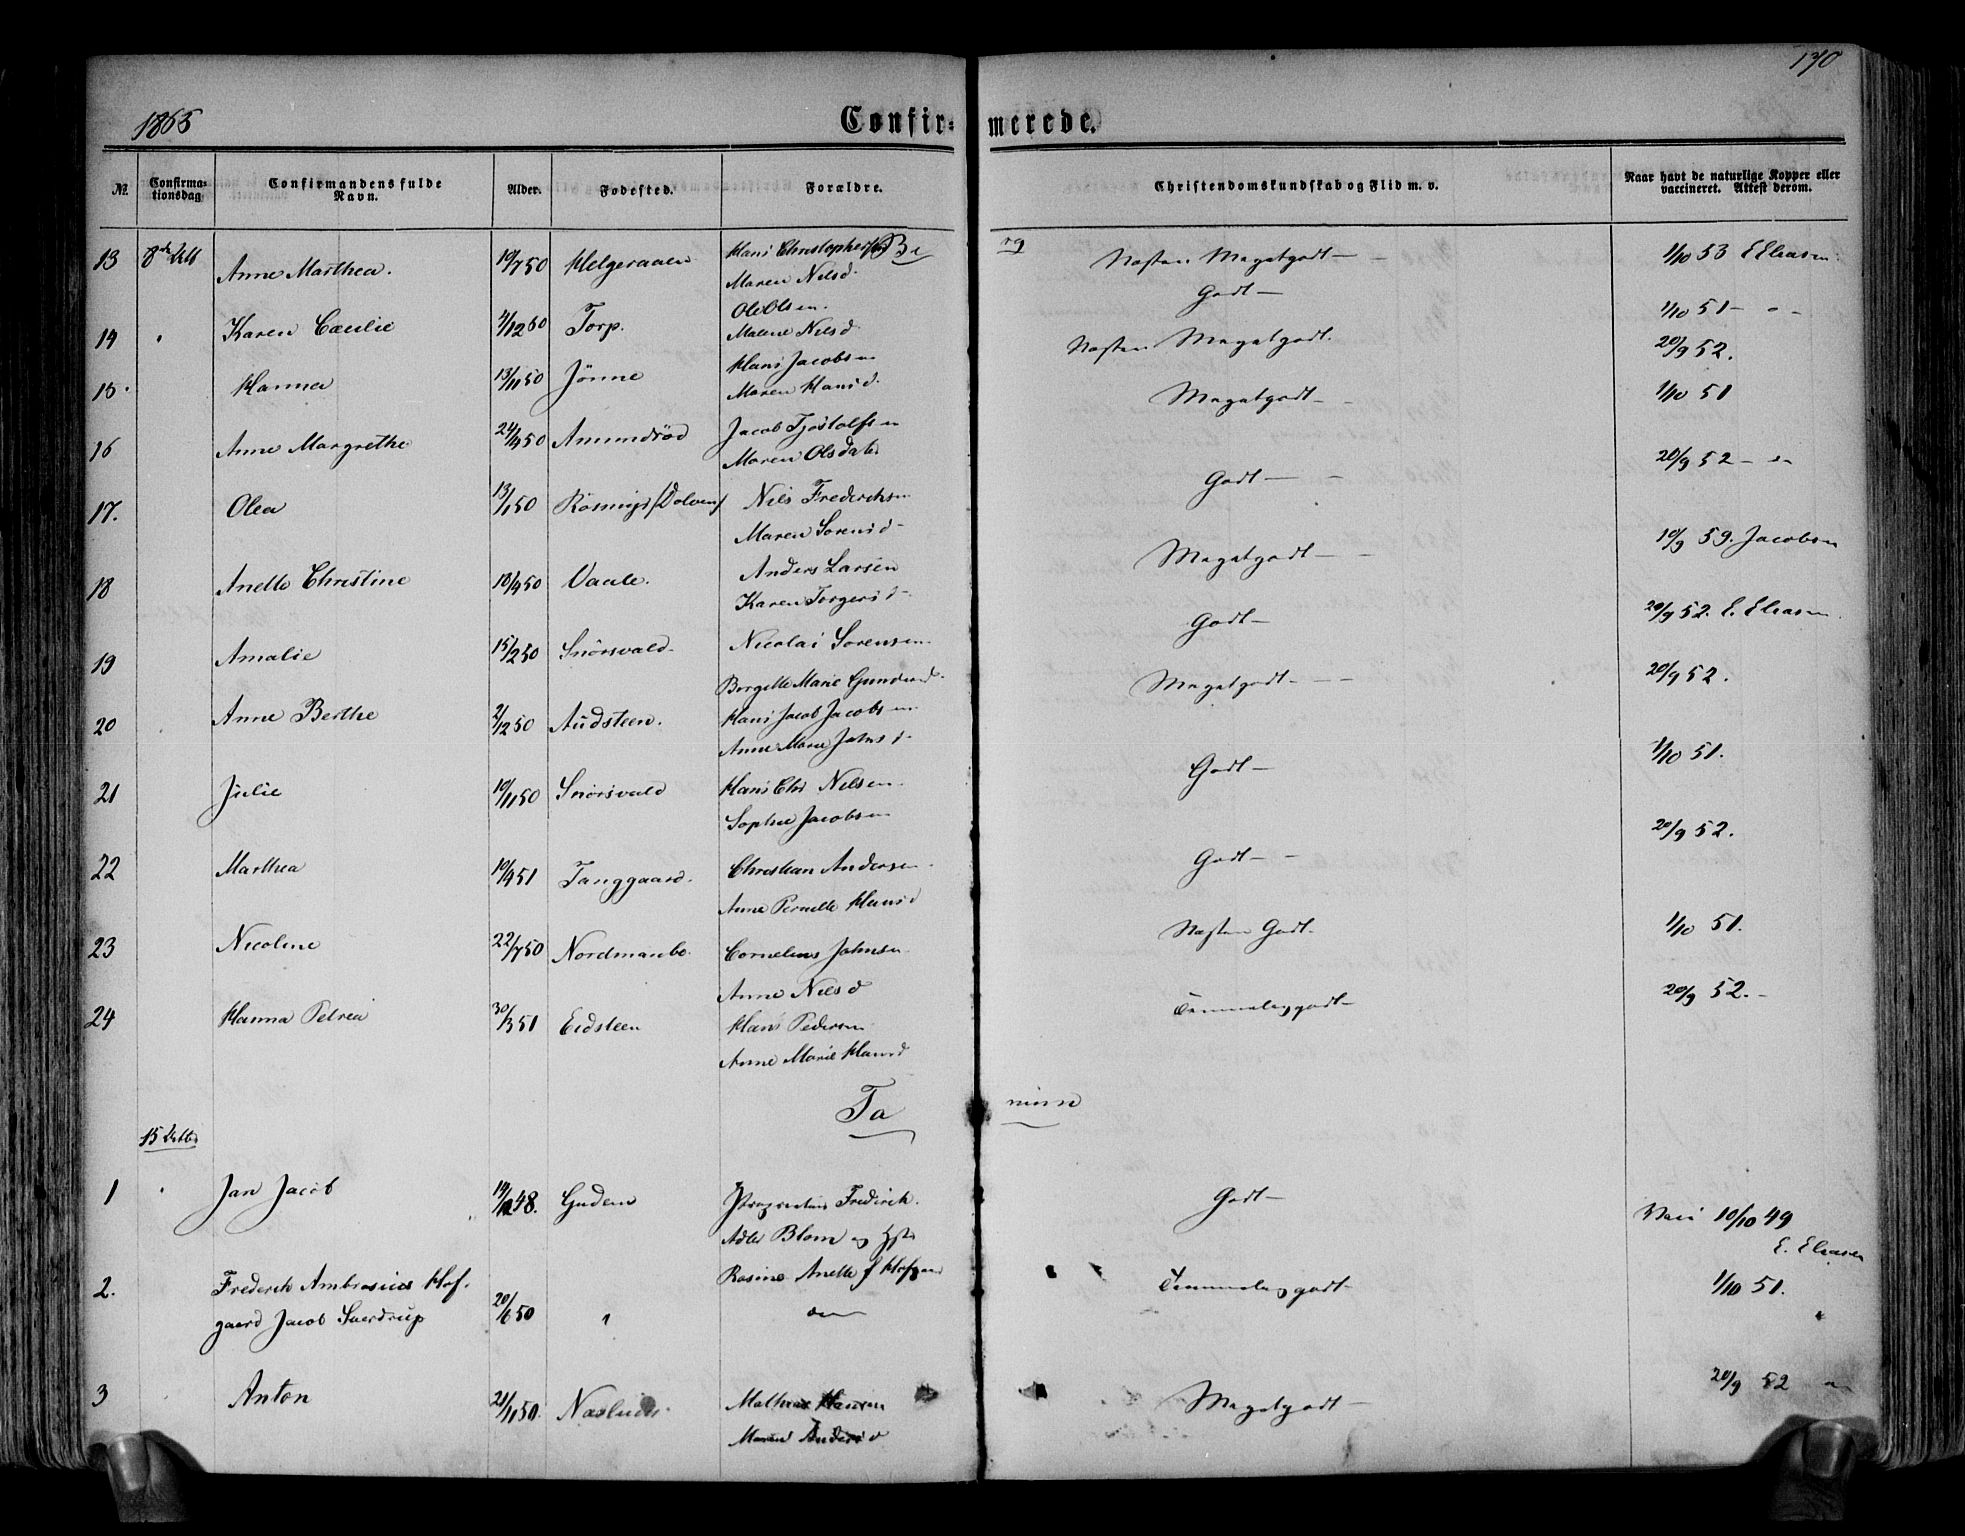 130
1865
Confir- merede.
№ Confirma-tionsdag Confirmandens fulde Navn. Alder. Fødested. Forældre. Christendomskundskab og Flid m. v. Naar havt de naturlige Kopper eller vaccineret. Attest derom.
Be rg
13 8de Anne Marthea. 10/7 50 Helgeraaen Hans Christophers Meget godt 1/10 53 E Eliasen
Maren Nilsd.
14 " Karen Cæcilie 4/12 50 Torp. Ole Olsen. Godt 1/10 51
Malene Nilsd.
15. Hanna 13/11 50 Jönne Hans Jacobsen Næsten Meget godt. 20/9 52.
Maren Hansd.
16 Anne Margrethe 24/9 50 Amundröd Jacob Tjostolfsen Meget godt 1/10 51
Maren Olsdatr
17. Olea 13/1 50 (Dolven) Nils Frederiksen Godt 20/9 52
Maren Sörensd
18 Anette Christine 18/9 50 Vaale. Anders Larsen Meget godt 10/9 59. Jacobsen
Karen Torgersd
19 Amalie 15/2 50 Snörsvald Nicolai Sorensen Godt 20/9 52. E. Eliasen
Borgitte Marie Gundersd.
20 Anne Berthe 2/12 50 Audsteen. Hans Jacob Jacobsen Meget godt 20/9 52.
Anne Marie Johnsd
21 Julie 10/11 50 Snörsvald Hans Chr Nilsen. Godt 1/10 51.
Sophie Jacobsen
22 Marthea 10/9 51 Tanggaard. Christian Andersen Godt 20/9 52.
Anne Pernille Hansd
23 Nicoline 22/7 50 Nordmanbo. Cornelius Johnsen Næsten Godt. 1/10 51.
Anne Nilsd
24 Hanna Petrea 30/3 51 Eidsteen Hans Pedersen Temmelig godt 20/9 52.
Anne Marie Hansd
Ta num
15 Octbr
1 Jan Jacob 14/12 48. Guden Proprietair Frederik Godt 10/10 49
Adler Blom og Hstr E. Eliasen
Rosine Anette f Hofgaard
2. Frederik Ambrosius Hof- Temmelig godt 1/10 51.
gaard Jacob Sverdrup 20/6 50 "
3 Anton 21/11 50. Mathias Hansen Meget godt 20/9 52
Maren Andersd